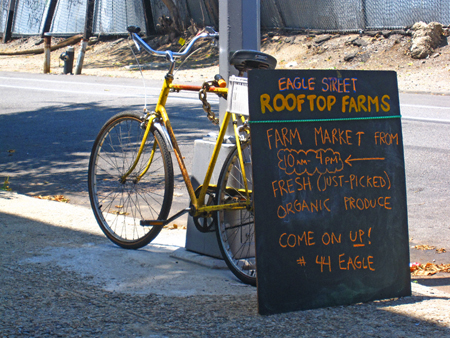 EAGLE STREET
ROOFTOP FARMS
FARM MARKET FROM
- 4PM ←
FRESH (JUST-PICKED)
ORGANIC PRODUCE
COME ON UP!
# 44 EAGLE